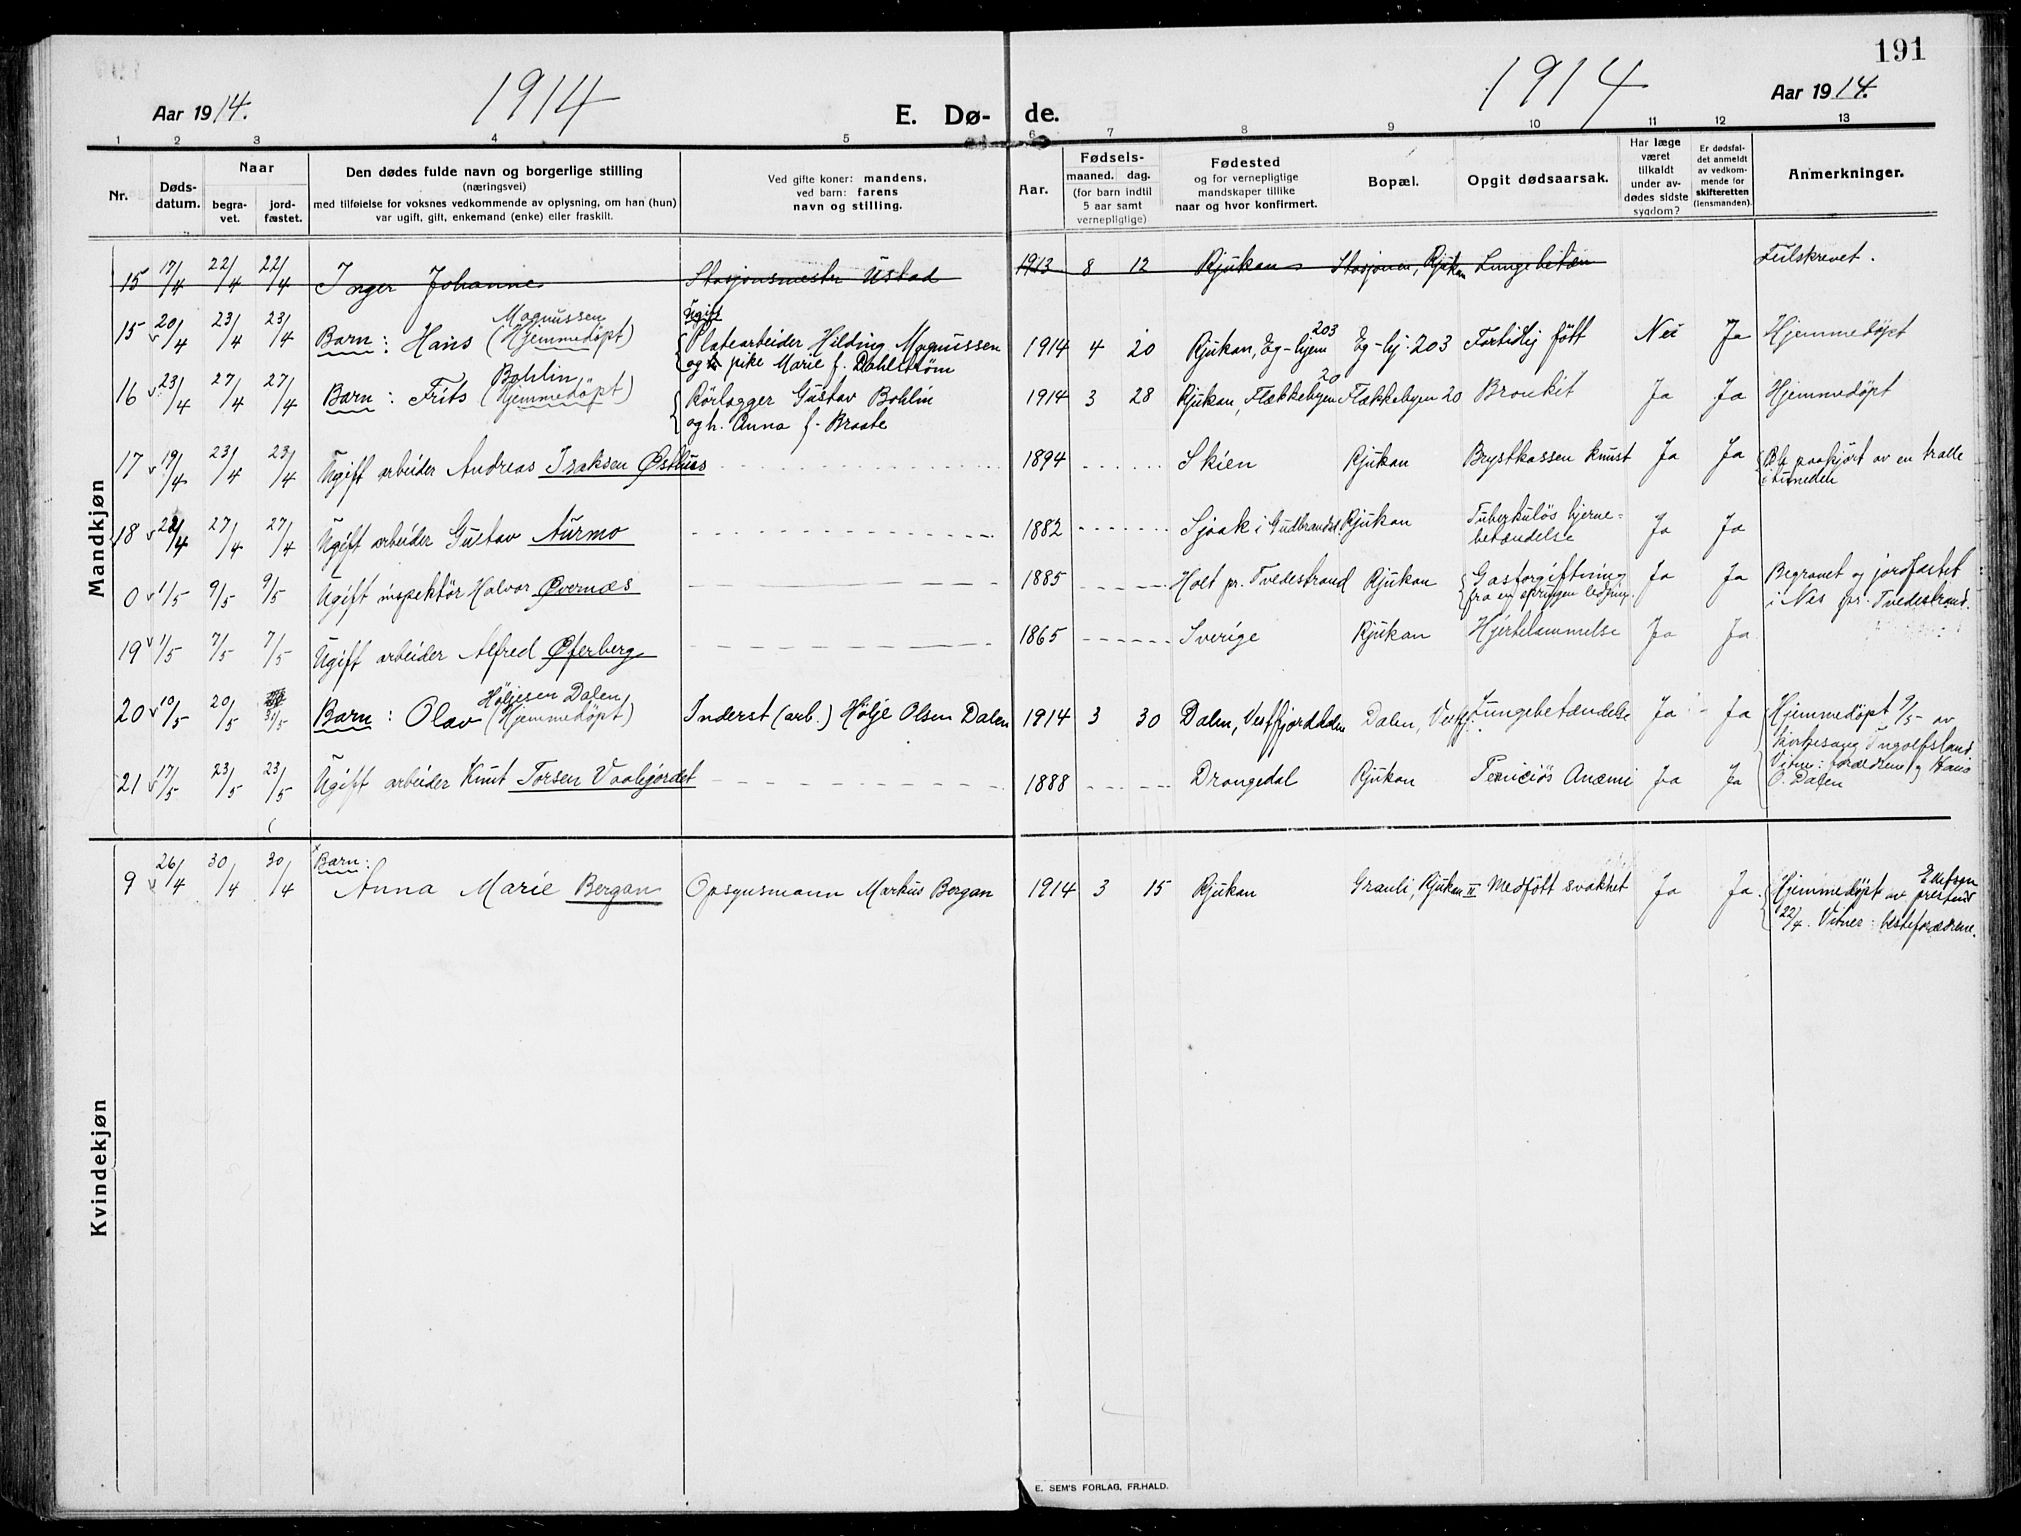 191
Aar 1914.
1914
E. Dø-
de.
1914
Aar 1914.
1 2 3 4 5 6 7 8 9 10 11 12 13
Nr.
Døds-
datum.
Naar
begra-
vet.
jord-
fæstet.
Den dødes fulde navn og borgerlige stilling
(næringsvei)
med tilføielse for voksnes vedkommende av oplysning, om han (hun)
var ugift, gift, enkemand (enke) eller fraskilt.
Ved gifte koner: mandens,
ved barn: farens
navn og stilling.
Aar.
Fødsels-
maaned. dag.
(for barn indtil
5 aar samt
vernepligtige)
Fødested
og for vernepligtige
mandskaper tillike
naar og hvor konfirmert.
Bopæl.
Opgit dødsaarsak.
Har læge
været
tilkaldt
under av-
dødes sidste
sygdom?
Er dødsfal-
det anmeldt
av vedkom-
mende for
skifteretten
(lensmanden).
Anmerkninger.
Mandkjøn
15 17/4 22/4 22/4 Inger Johanne Stasjonsmester Ustad 1913 8 12 Rjukan Stasjonen, Rjukan Lungebetæn Feilskrevet.
Magnussen
Ugift
203
15 20/4 23/4 23/4 Barn: Hans (Hjemmedøpt) Platearbeider Hilding Magnussen 1914 4 20 Rjukan, Eg-hjem Eg-hj. 203 Fortidlig født Nei Ja Hjemmedøpt
og pike Marie f. Dahlstrøm
Bohlin
20
16 23/4 27/4 27/4 Barn: Frits (Hjemmedøpt) Rørlægger Gustav Bohlin 1914 3 28 Rjukan, Flækkebyen Flækkebyen 20 Bronkit Ja Ja Hjemmedøpt
og h. Anna f. Braate
17 19/4 23/4 23/4 Ugift arbeider Andreas Isaksen Østhus 1894 Skien Rjukan Brystkassen knust Ja Ja Blev paakjørt av en tralle
i tunnelen
18 22/4 27/4 27/4 Ugift arbeider Gustav Aurmo 1882 Sjaak i Gudbrandsd. Rjukan Tuberkuløs hjerne- Ja Ja
betændelse
0 1/5 9/5 9/5 Ugift inspektør Halvor Øvernæs 1885 Holt pr. Tvedestrand Rjukan Gasforgiftning Ja Ja Begravet og jordfæstet
fra en sprungen ledning. i Næs pr. Tvedestrand.
19 1/5 7/5 7/5 Ugift arbeider Alfred Øferberg 1865 Sverige Rjukan Hjertelammelse Ja Ja
Høljesen Dalen
20 10/5 20/5 31/5 Barn: Olav (Hjemmedøpt) Inderst (arb.) Hølje Olsen Dalen 1914 3 30 Dalen, Vestfjorddalen Dalen, Vestfj. Lungebetændelse Ja Ja Hjemmedøpt 9/5 av
kirkesang. Ingolfsland
Vitne: forældrene og Hans
O. Dalen
21 17/5 23/5 23/5 Ugift arbeider Knut Torsen Vaalegordet 1888 Drangedal Rjukan Perniciøs Anæmi Ja Ja
Kvindekjøn
Barn:
9 26/4 30/4 30/4 Anna Marie Bergan Opsynsmann Markus Bergan 1914 3 15 Rjukan Granli, Rjukan II Medfødt svakhet Ja Ja. Hjemmedøpt av
presten
22/4. Vitner: besteforældrene.
E. SEM'S FORLAG, FR.HALD.